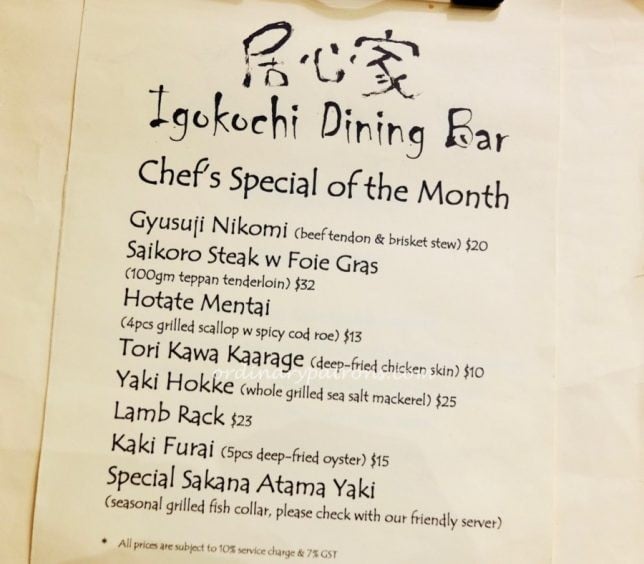 居心家
Igokochi Dining Bar
Chef's Special of the Month
Gyusuji Nikomi (beef tendon & brisket stew) $20
Saikoro Steak w Foie Gras
(100gm teppan tenderloin) $32
Hotate Mentai
(4pcs grilled scallop w spicy cod roe) $13
Tori Kawa Kaarage (deep-fried chicken skin) $10
ordinarypatrons.com
Yaki Hokke (whole grilled sea salt mackerel) $25
Lamb Rack $23
Kaki Furai (5pcs deep-fried oyster) $15
Special Sakana Atama Yaki
(seasonal grilled fish collar, please check with our friendly server)
* All prices are subject to 10% service charge & 7% GST